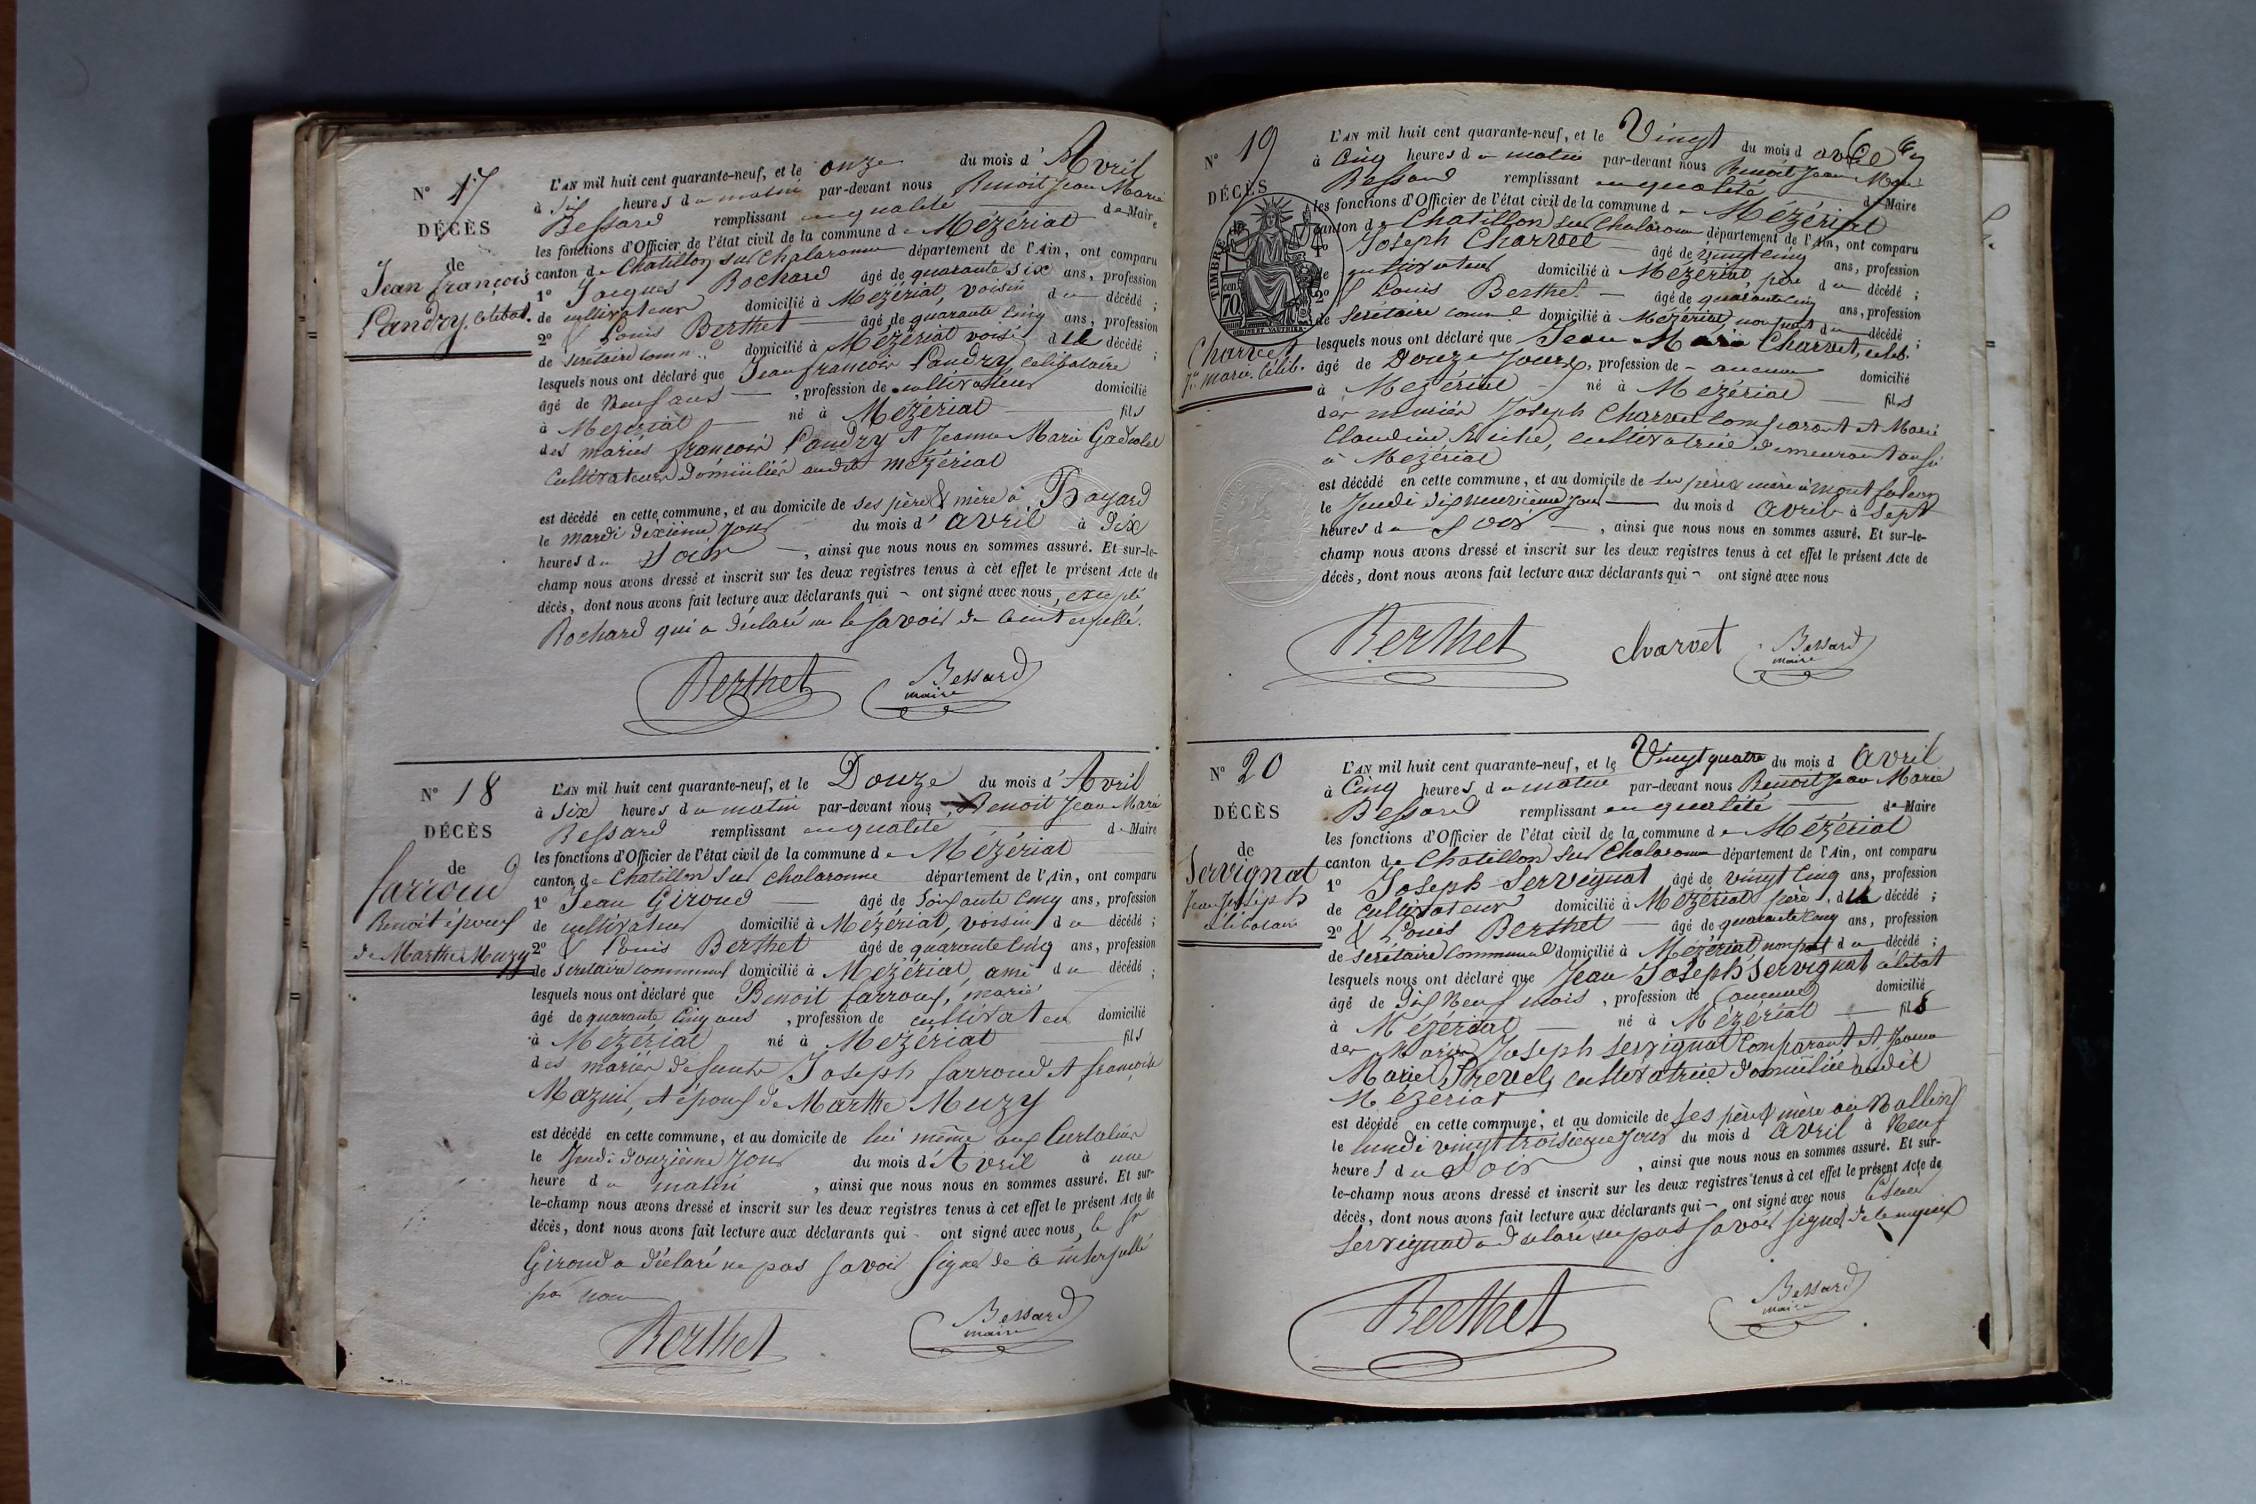 N° 17
DÉCÈS
de
Jean françois
Landry, célibat.
L'AN mil huit cent quarante-neuf, et le onze du mois d'Avril
à six heures du matin par-devant nous Benoit Jean Marie
Bessard remplissant en qualité de Maire
les fonctions d'Officier de l'état civil de la commune de Mézériat
canton de Chatillon sur chalaronne département de l'Ain, ont comparu
1° Jacques Rochard âgé de quarante six ans, profession
de cultivateur domicilié à Mézériat, voisin du décédé ;
2° & Louis Berthet âgé de quarante cinq ans, profession
de secretaire comm.al domicilié à Mézériat voisin du décédé ;
lesquels nous ont déclaré que Jean françois Landry, célibataire
âgé de neuf ans, profession de cultivateur domicilié
à Mézériat né à Mézériat fils
des mariés françois Landry et Jeanne Marie
cultivateurs domiciliés audit mézériat
est décédé en cette commune, et au domicile de ses père & mère à Bayard
le mardi dixième jour du mois d'avril à dix
heures du soir, ainsi que nous nous en sommes assuré. Et sur-le-
champ nous avons dressé et inscrit sur les deux registres tenus à cèt effet le présent Acte de
décès, dont nous avons fait lecture aux déclarants qui ont signé avec nous, excepté
Rochard qui a déclaré ne le savoir de ce interpellé.
Berthet Bessard
maire
N° 18
DÉCÈS
de
farroud
Benoit époux
de Marthe Muzy
L'AN mil huit cent quarante-neuf, et le Douze du mois d'Avril
à six heures du matin par-devant nous Benoit Jean Marie
Bessard remplissant en qualité de Maire
les fonctions d'Officier de l'état civil de la commune de Mézériat
canton de Chatillon sur chalaronne département de l'Ain, ont comparu
1° Jean Giroud âgé de soixante cinq ans, profession
de cultivateur domicilié à Mézériat, voisin du décédé ;
2° & Louis Berthet âgé de quarante cinq ans, profession
de secretaire communal domicilié à Mézériat, ami du décédé ;
lesquels nous ont déclaré que Benoit farroud, marié
âgé de quarante cinq ans, profession de cultivateur domicilié
à Mézériat né à Mézériat fils
des mariés défunts Joseph farroud et françoise
Mazuir, et époux de Marthe Muzy
est décédé en cette commune, et au domicile de lui même aux
le Jeudi douzième jour du mois d'Avril à une
heure du matin, ainsi que nous nous en sommes assuré. Et sur-
le-champ nous avons dressé et inscrit sur les deux registres tenus à cet effet le présent Acte de
décès, dont nous avons fait lecture aux déclarants qui ont signé avec nous, le sr
Giroud a déclaré ne pas savoir signer de ce interpellé
par nous
Berthet Bessard
maire
N° 19
DÉCÈS
de
Charvet
Jn marie. célib.
TIMBRE
70 cen
L'AN mil huit cent quarante-neuf, et le Vingt du mois d avril
à cinq heures du matin par-devant nous Benoit Jean Marie
Bessard remplissant en qualité de Maire
les fonctions d'Officier de l'état civil de la commune de Mézériat
canton de Chatillon sur Chalaronne département de l'Ain, ont comparu
1° Joseph Charvet âgé de vingt cinq ans, profession
de cultivateur domicilié à Mézériat, père du décédé ;
2° & Louis Berthet âgé de quarante cinq ans, profession
de secretaire comm.l domicilié à Mézériat, non parent du décédé ;
lesquels nous ont déclaré que Jean Marie Charvet, célib.
âgé de Douze jours, profession de aucune domicilié
à Mézériat né à Mézériat fils
des mariés Joseph Charvet comparant et Marie
Claudine Riche, cultivatrice demeurant aussi
à Mézériat
est décédé en cette commune, et au domicile de ses père & mère à
le Jeudi dix neuvième jour du mois d avril à sept
heures du soir, ainsi que nous nous en sommes assuré. Et sur-le-
champ nous avons dressé et inscrit sur les deux registres tenus à cet effet le présent Acte de
décès, dont nous avons fait lecture aux déclarants qui ont signé avec nous
Berthet charvet Bessard
maire
N° 20
DÉCÈS
de
Servignat
Jean joseph
célibataire
L'AN mil huit cent quarante-neuf, et le Vingt quatre du mois d avril
à Cinq heures du matin par-devant nous Benoit Jean Marie
Bessard remplissant en qualité de Maire
les fonctions d'Officier de l'état civil de la commune de Mézériat
canton de Chatillon sur Chalaronne département de l'Ain, ont comparu
1° Joseph Servignat âgé de vingt cinq ans, profession
de cultivateur domicilié à Mézériat père, du décédé ;
2° & Louis Berthet âgé de quarante cinq ans, profession
de secrétaire communal domicilié à Mézériat non pat du décédé ;
lesquels nous ont déclaré que Jean Joseph Servignat célibat
âgé de dix neuf mois, profession de aucune domicilié
à Mézériat né à Mézériat fils
des mariés Joseph Servignat comparant et Jeanne
Marie Prevel, cultivatrice domiciliée audit
Mézériat
est décédé en cette commune, et au domicile de ses père & mère au
le lundi vingt troisième jour du mois d avril à neuf
heures du soir, ainsi que nous nous en sommes assuré. Et sur-
le-champ nous avons dressé et inscrit sur les deux registres tenus à cet effet le présent Acte de
décès, dont nous avons fait lecture aux déclarants qui ont signé avec nous le sieur
Servignat a déclaré ne pas savoir signer de ce requis
Berthet Bessard
maire